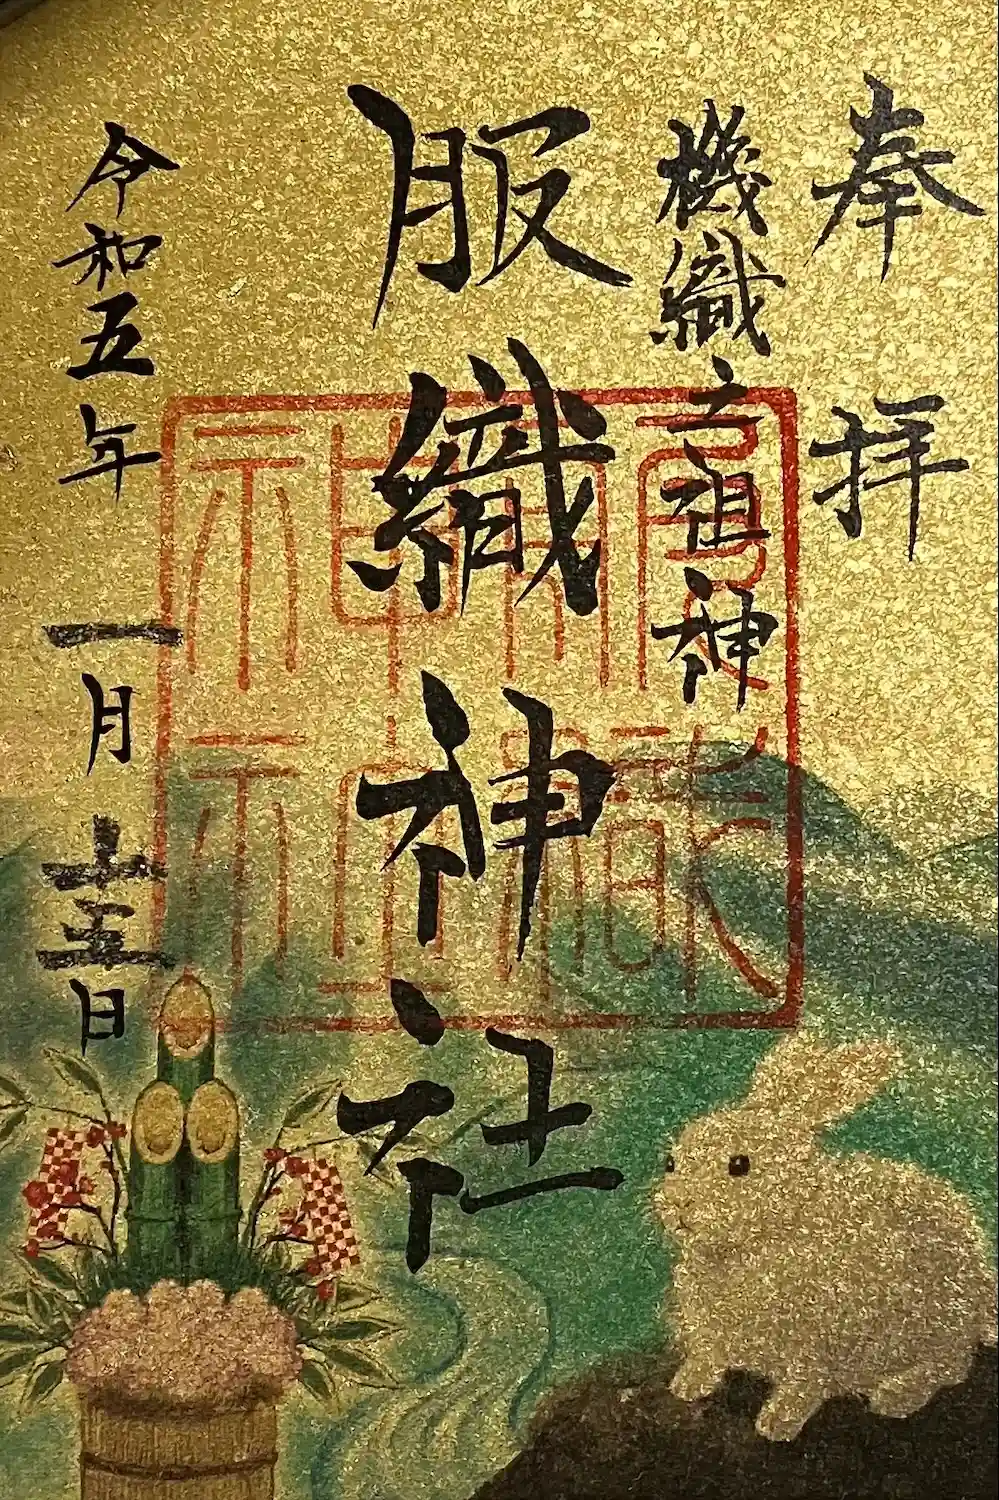 奉拝
機織之祖神
服織神社
令和五年一月十五日
服織
神社